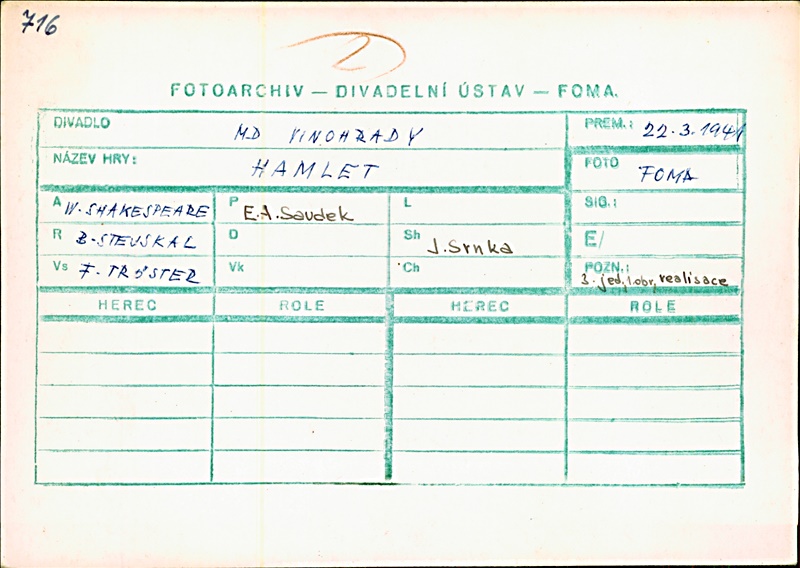 716
2
FOTOARCHIV — DIVADELNÍ ÚSTAV — FOMA.
DIVADLO MD VINOHRADY PREM.: 22.3.1941
NÁZEV HRY: HAMLET FOTO FOMA
A W. SHAKESPEARE P E.A. Saudek L SIG.:
R B. STEUSKAL D Sh J. Srnka E/
Vs F. TRÖSTER Vk Ch POZN.: 3. jed, 1. obr, realisace
HEREC ROLE HEREC ROLE